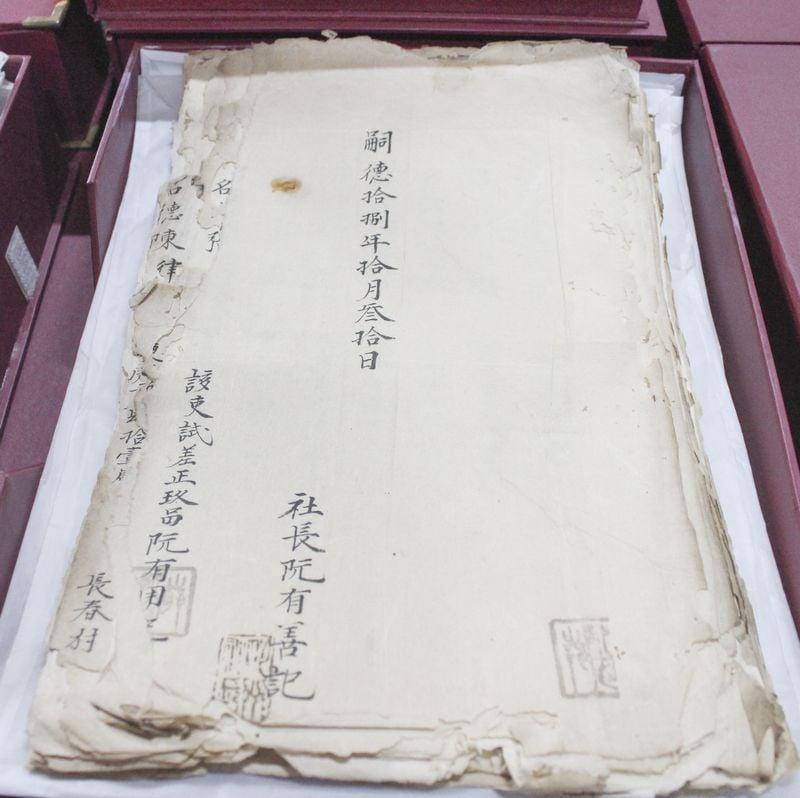 嗣德拾捌年拾月叁拾日
社長阮有善記
該吏試差正玖品阮有用
名
德陳律
拾壹
長春